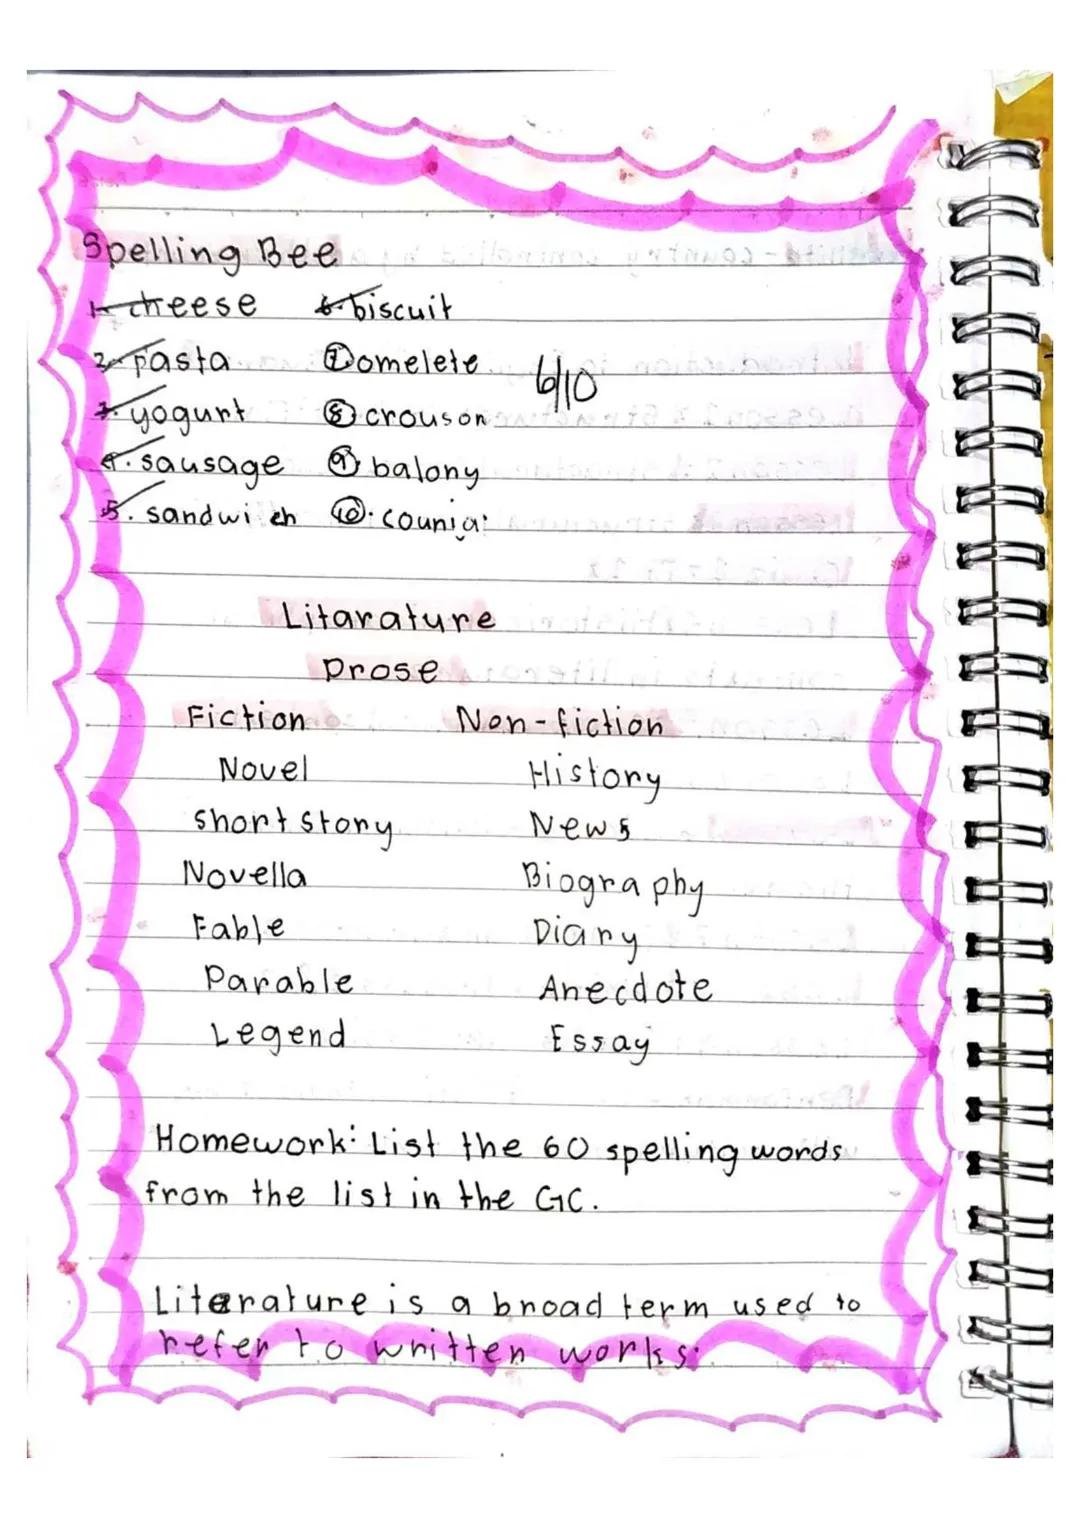 Spelling Bee
1. cheese 6. biscuit
2. pasta 7 omelete 6/10
3. yogurt 8 crouson
4. sausage 9 balony
5. sandwich 10. counia
Litarature
Prose
Fiction Non-fiction
Novel History
short story News
Novella Biography
Fable Diary
Parable Anecdote
Legend Essay
Homework: List the 60 spelling words
from the list in the GC.
Literature is a broad term used to
refer to written works.